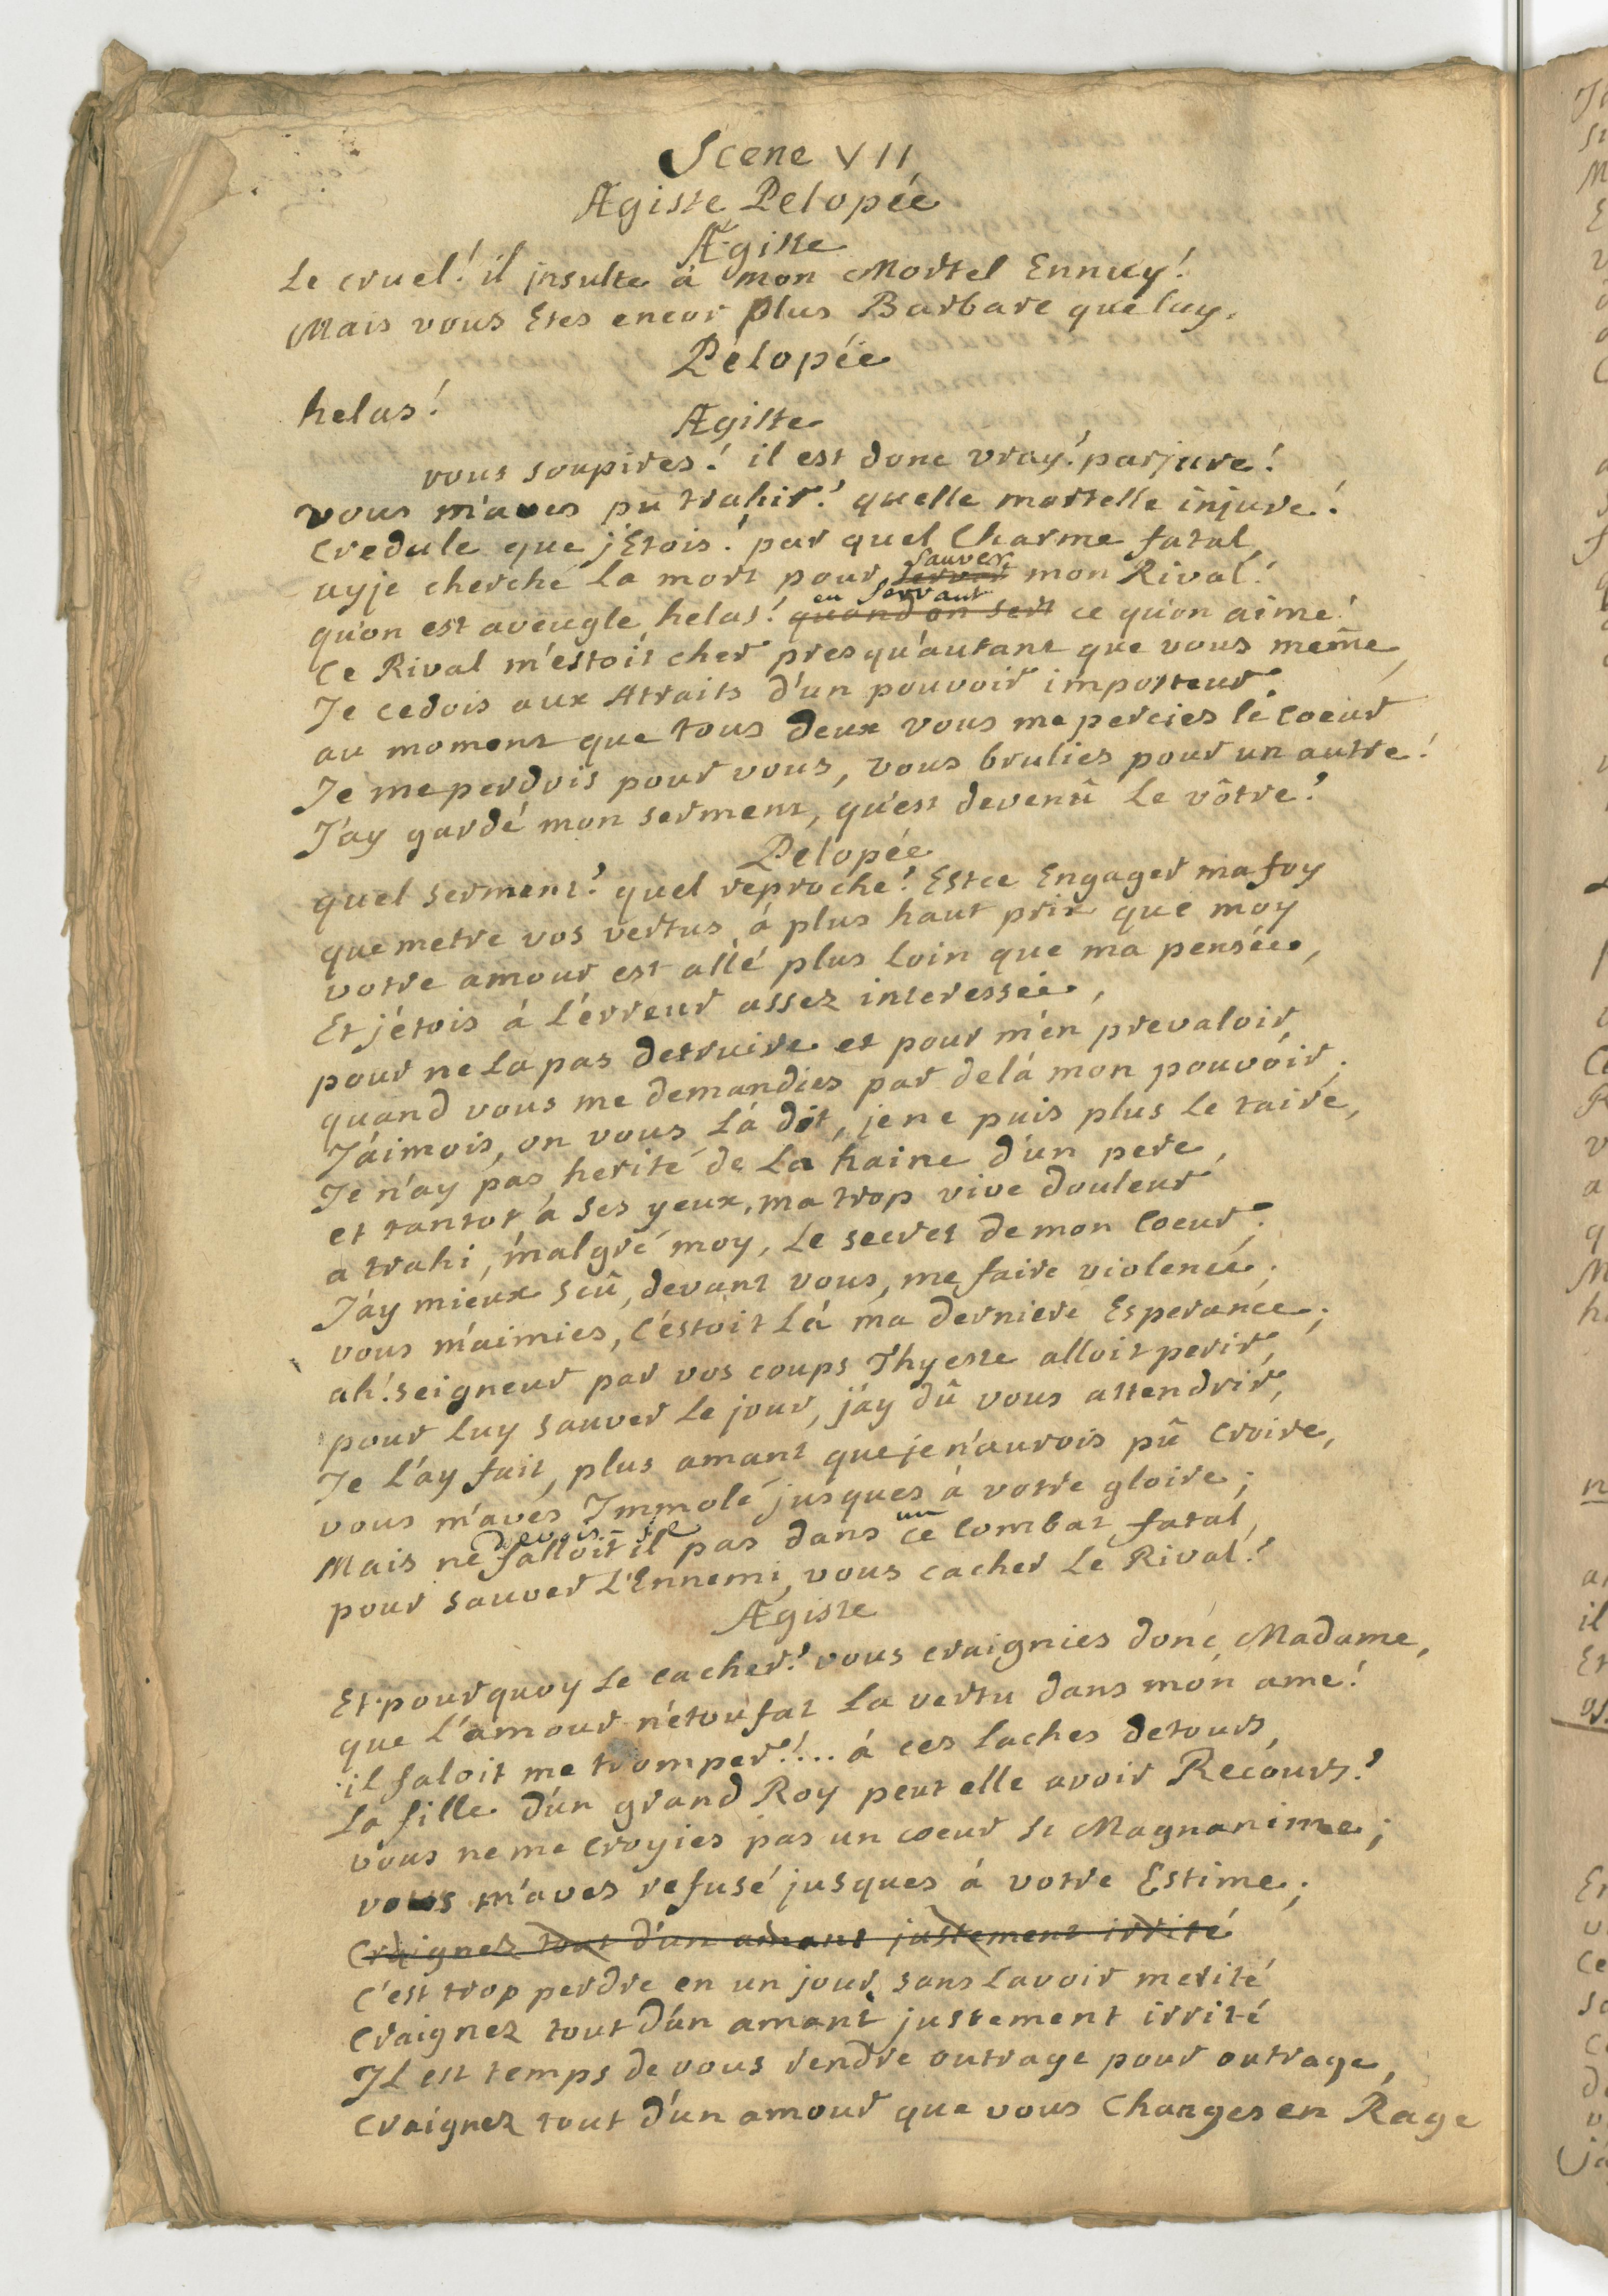 Scene VII
Ægiste Pelopée
Ægiste
Le cruel! il jnsulte à mon Mortel Ennuy!
Mais vous Etes encor plus Barbare que luy.
Pélopée
helas!
Ægiste
vous soupires! il est donc vray! parjure!
vous m'aves pu trahir! quelle mortelle injure!
Credule que j'Etois! par quel Charme fatal,
ayje cherché la mort pour server sauver mon Rival!
qu'on est aveugle helas! quand on sert en servant ce qu'on aime!
Ce Rival m'estoit cher presqu'autant que vous meme,
Je cedois aux Atraits d'un pouvoir imposteur.
au moment que tous deux vous me percies le Coeur
Je me perdois pour vous, vous brulies pour un autre!
J'ay gardé mon serment, qu'est devenû le vôtre!
Pelopée
quel serment! quel reproche! Estce Engager ma foy
que metre vos vertus à plus haut prix que moy
votre amour est allé plus loin que ma pensée,
Et j'étois à l'érreur assez interessée,
pour ne la pas detruire et pour m'en prevaloir,
quand vous me demandies par dela mon pouvoir;
J'aimois, on vous l'a dit, je ne puis plus le taire,
Je n'ay pas herité de la haine d'un pere,
et tantot à ses yeux, ma trop vive douleur
a trahi, malgré moy, le secret de mon Coeur;
J'ay mieux scû, devant vous, me faire violence;
vous m'aimies, c'éstoit là ma derniere Esperance;
ah! seigneur par vos coups Thyeste alloit perir,
pour luy sauver le jour, j'ay dû vous attendrir,
Je l'ay fait, plus amant que je n'aurois pû croire,
vous m'aves Jmmolé jusques à votre gloire;
Mais ne falloit il devois-je pas dans ce un Combat fatal,
pour sauver L'Ennemi, vous cacher le Rival!
Ægiste
Et pourquoy le cacher! vous craignies donc Madame,
que l'amour n'étoufat la vertu dans mon ame!
il faloit me tromper!... à ces laches detours,
La fille d'un grand Roy peut elle avoir Recours!
vous ne me croyies pas un coeur si Magnanime;
vous m'aves refusé jusques à votre Estime;
Craignez tout d'un amant justement irrité
C'est trop perdre en un jour sans lavoir merité
Craignez tout d'un amant justement irrité
Il est temps de vous rendre outrage pour outrage,
Craignez tout d'un amour que vous Changes en Rage